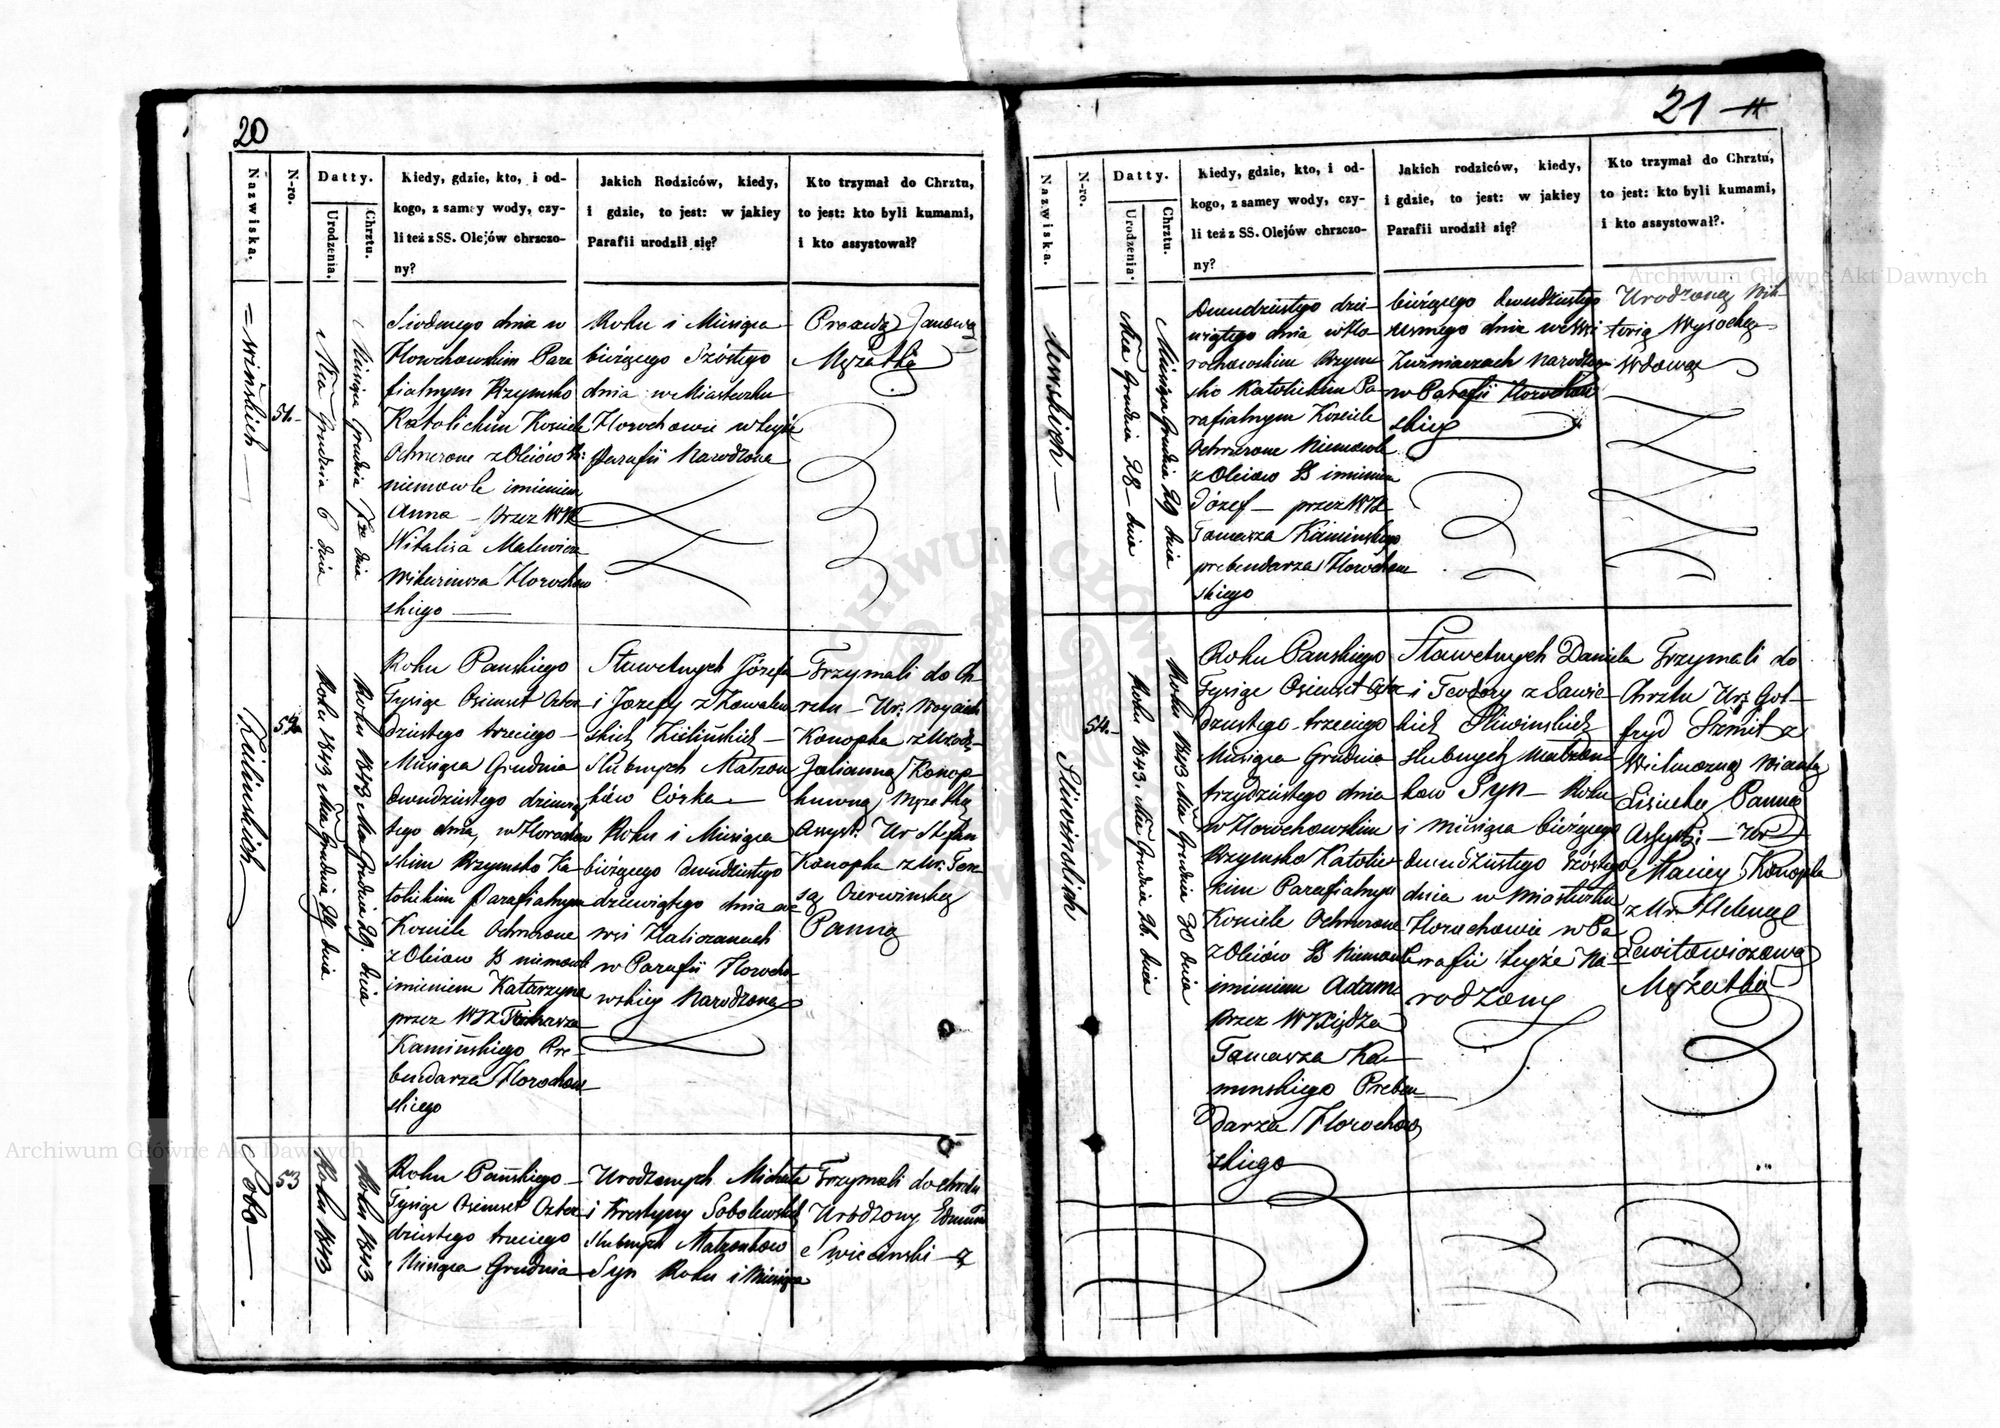 20
Nazwiska.
N-ro.
Datty.
Urodzenia.
Chrztu.
Kiedy, gdzie, kto, i od-
kogo, z samey wody, czy-
li też z SS. Olejów chrzczo-
ny?
Jakich Rodziców, kiedy,
i gdzie, to jest: w jakiey
Parafii urodził się?
Kto trzymał do Chrztu,
to jest: kto byli kumami,
i kto assystował?
=wińskich—
51.
Mca Grudnia 6 dnia
Miesiąca Grudnia 7go dnia
Siodmego dnia w
Horochowskim Para
fialnym Rzymsko
Katolickim Kosciele
Ochrzcone z Olejów SS:
niemowle imieniem
Anna – przez WJX
Witalisa Malewicza
Wikariusza Horochow
skiego
Roku i Miesiąca
bieżącego Szóstego
dnia w Miasteczku
Horochowie w teyże
Parafii Narodzona
Prawdą Janową
Mężatką
Zielinskich
52
Roku 1843 Mca Grudnia 29 dnia
Roku 1843 Mca Grudnia 29. dnia
Roku Panskiego
Tysiąc Osiemset Czter
dziestego trzeciego –
Miesiąca Grudnia
dwudziestego dziewią
tego dnia, w Horochow
skim Rzymsko Ka-
tolickim Parafialnym
Kosciele Ochrzcone
z Olejów SS niemowle
imieniem Katarzyna
przez WJX Tomasza
Kamińskiego Pre-
bendarza Horochow
skiego
Sławetnych Józefa
i Józefy z Kowalew
skich Zielińskich –
Slubnych Małżon
ków Córka –
Roku i Miesiąca
bieżącego dwudziestego
dziewiątego dnia we
wsi Haliczanach
w Parafii Horocho
wskiey Narodzona
Trzymali do Ch-
rztu – Ur: Woyciech
Konopka z Urodz:
Julianną Konop
kuwną Mężatką
Assyst: Ur Stefan
Konopka z Ur: Tere
są Czerwinską
Panną
Sobo—
53
Roku 1843
Roku 1843
Roku Pańskiego –
Tysiąc Osiemset Czter
dziestego trzeciego
Miesiąca Grudnia
Urodzonych Michała
i Krystyny Sobolewskich
Slubnych Małżonków
Syn Roku i Miesiąca
Trzymali do chrztu
Urodzony Edmund
Swięcinski – z
21
Nazwiska.
N-ro.
Datty.
Urodzenia.
Chrztu.
Kiedy, gdzie, kto, i od-
kogo, z samey wody, czy-
li też z SS. Olejów chrzczo-
ny?
Jakich rodziców, kiedy,
i gdzie, to jest: w jakiey
Parafii urodził się?
Kto trzymał do Chrztu,
to jest: kto byli kumami,
i kto assystował?.
lewskich —
Mca Grudnia 28– dnia
Miesiąca Grudnia 29 dnia
Dwudziestego dzie-
wiątego dnia w Ho-
rochowskim Rzym
sko Katolickim Pa-
rafialnym Kosciele
Ochrzcone Niemowle
z Olejów SS imieniem
Józef – przez WJX
Tomasza Kaminskego
prebendarza Horochow
skiego
bieżącego dwudziestego
ósmego dnia we Wsi
narodzony
w Parafii Horochow
skiey
Urodzoną Wik-
torią Wysocką
Wdową
Sliwinskich
54.
Roku 1843. Mca Grudnia 26. dnia
Roku 1843 Mca Grudnia 30 dnia
Roku Panskiego
Tysiąc Osiemset Czter
dziestego trzeciego
Miesiąca Grudnia
trzydziestego dnia
w Horochowskim
Rzymsko Katolic
kim Parafialnym
Kosciele Ochrzcone
z Olejów SS Niemowle
imieniem Adam
Przez W Xiędza
Tomasza Ka-
minskiego Preben
darza Horochow
skiego
Sławetnych Daniela
i Teodory z Sawic
kich Sliwinskich
slubnych małżon
ków Syn – Roku
i miesiąca bieżącego
dwudziestego szóstego
dnia w Miasteczku
Horochowie w Pa
rafii teyże Na-
rodzony
Trzymali do
Chrztu Ur: Got-
fryd Szmit z
Wielmożną
Panną
Assyst: – Ur
Maciey Konopka
z Ur. Heleną
Lewitowiczową
Mężatką
Archiwum Główne Akt Dawnych
Archiwum Główne Akt Dawnych